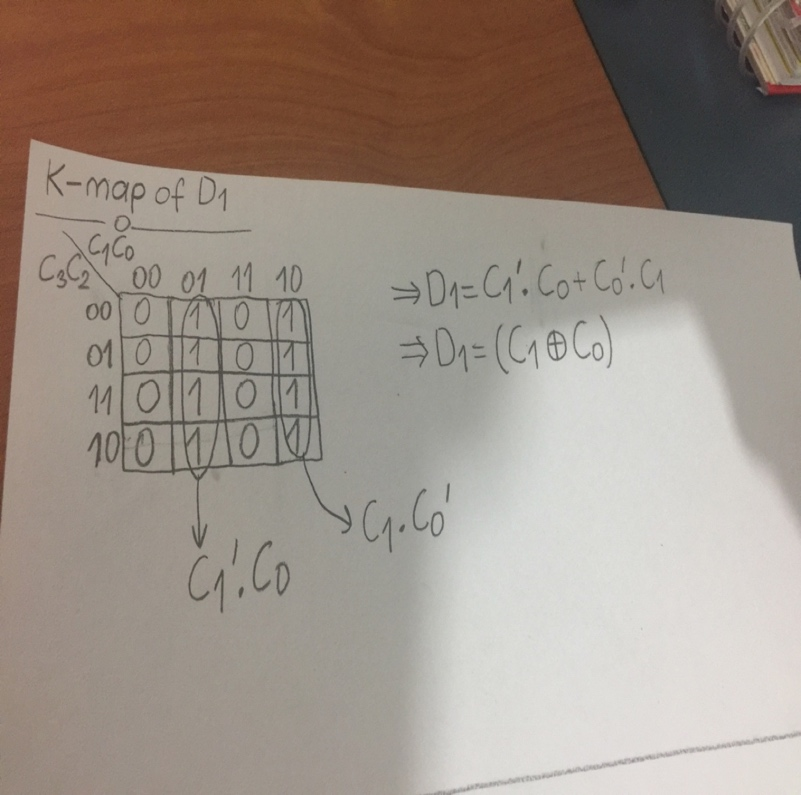 K-map of D1
C1C0
C3C2 00 01 11 10
00 0 1 0 1
01 0 1 0 1
11 0 1 0 1
10 0 1 0 1
⇒D1=C1'.C0+C0'.C1
⇒D1=(C1⊕C0)
C1.C0'
C1'.C0